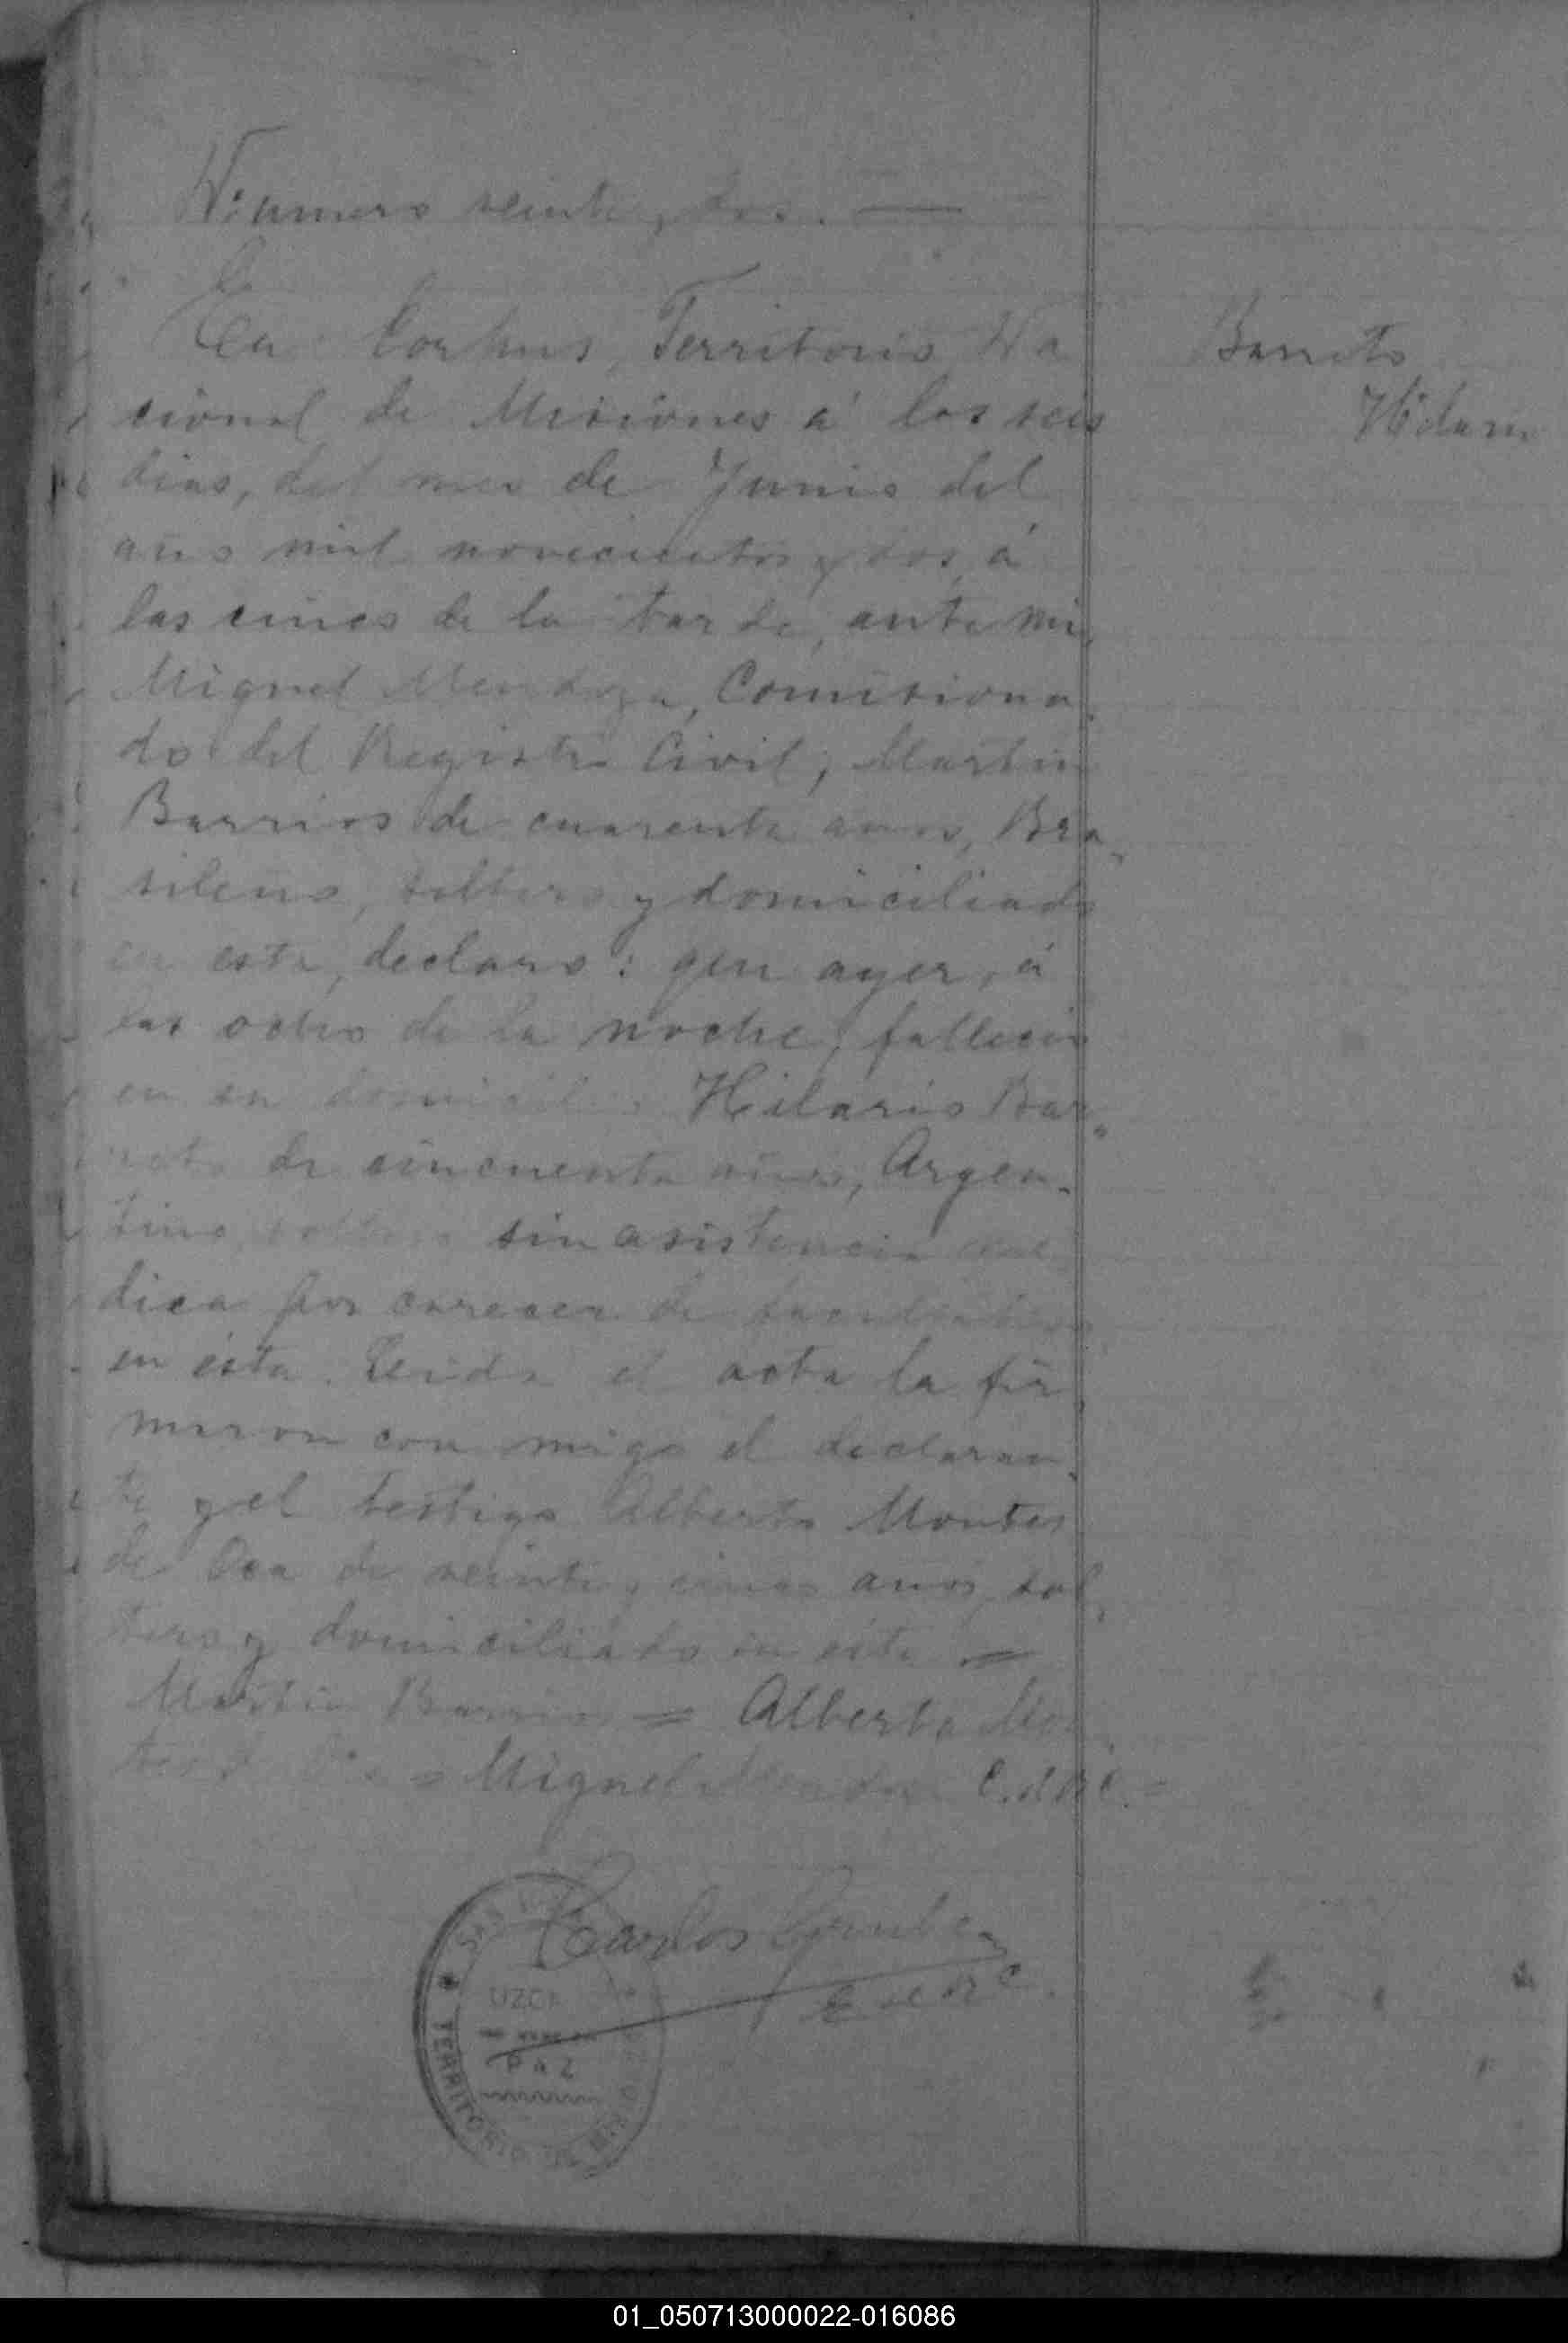 Número veinte y dos. —
En Corpus, Territorio Na
Barreto
cional de Misiones á los seis
Hilario
dias, del mes de Junio del
año mil novecientos y dos, á
las cinco de la tarde, ante mi,
Miguel Mendoza, Comisiona
do del Registro Civil, Martin
Barrios de cuarenta anos, Bra
sileño, soltero y domiciliado
en esta, declaro: que ayer, á
las ocho de la noche, fallecio
en su domicilio Hilario Bar
reto de cincuenta años, Argen
tino, soltero sin asistencia me
dica por carecer de facultativo
en ésta. Leida el acta la fir
maron con migo el declaran
te y el testigo Alberto Montes
de Oca de veinte y cinco anos, sol
tero y domiciliado en ésta =
Martin Barrios = Alberto Mon
tes de Oca = Miguel Mendoza C. d R C. =
Carlos
PAZ
TERRITORIO
01_050713000022-016086